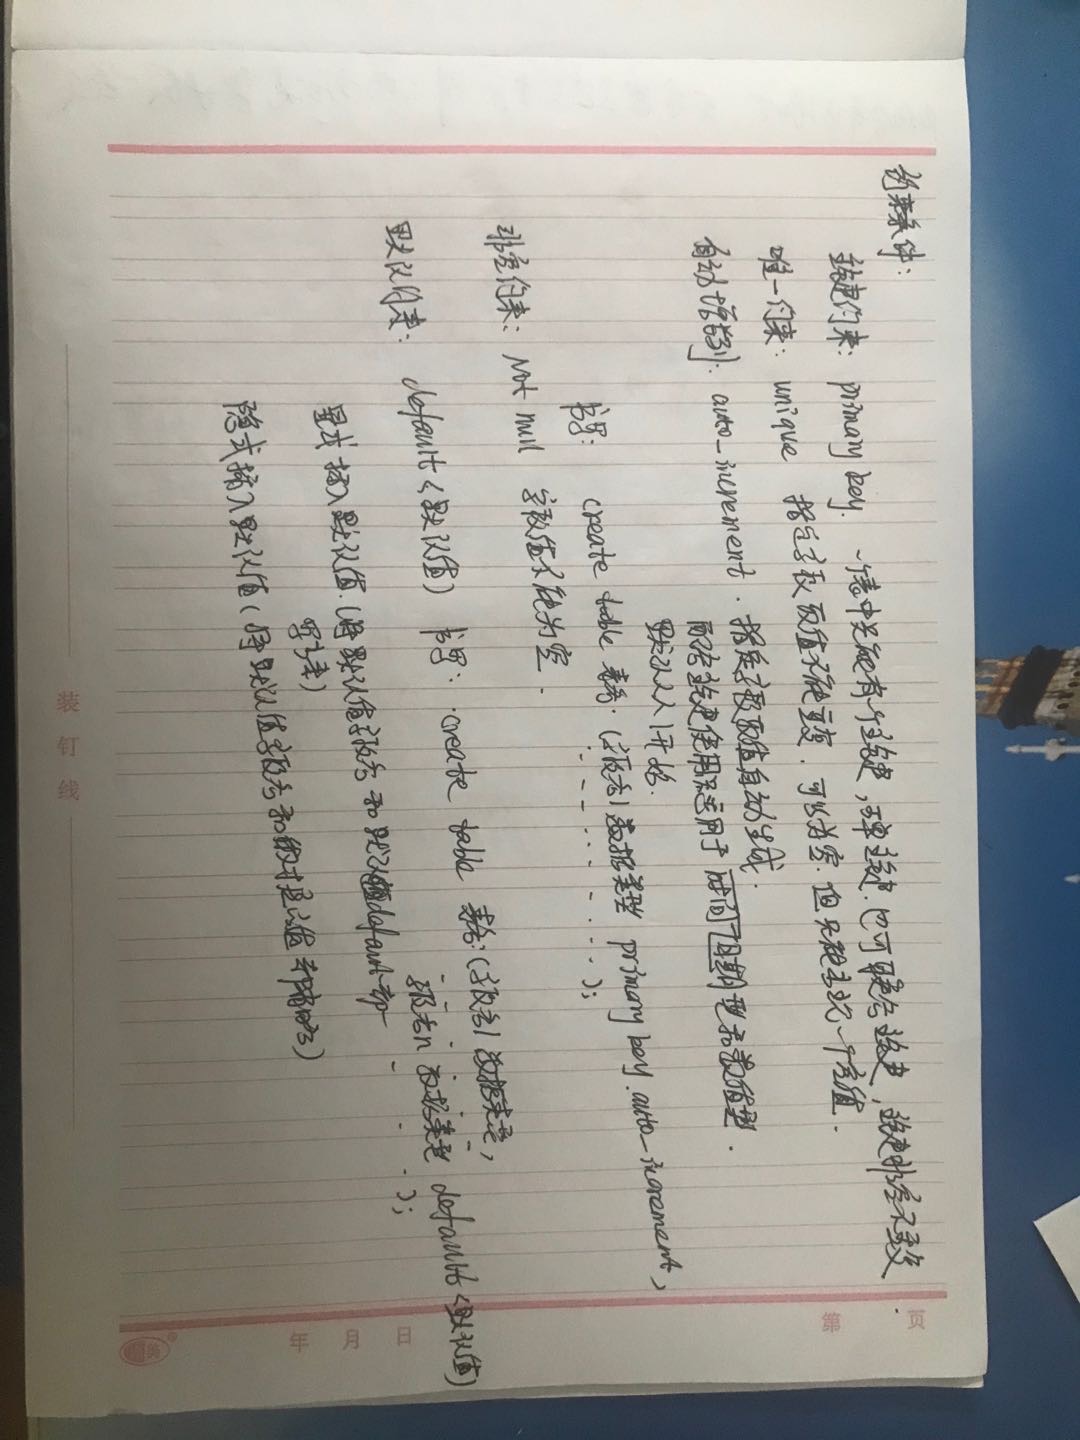 约束条件：
主键约束： primary key. 一个表中只能有一个主键，可单主键. 也可复合主键，主键非空不重复.
唯一约束： unique 指定字段取值不能重复. 可以为空. 但只能出现一个空值.
自动增长列： auto_increment. 指定字段取值自动生成.
配合主键使用只适用于时间日期型和数值型.
默认从1开始.
书写： create table 表名. (字段名1 数据类型 primary key. auto_increment,
);
非空约束： Not null 字段值不能为空.
默认约束： default <默认值> 书写： create table 表名. (字段名1 数据类型,
字段名n 数据类型 default <默认值>
);
显式插入默认值. (将默认值字段名和默认值default都
写上来)
隐式插入默认值 (将默认值字段名和的对应值都省略)
第 页
年 月 日
装钉线